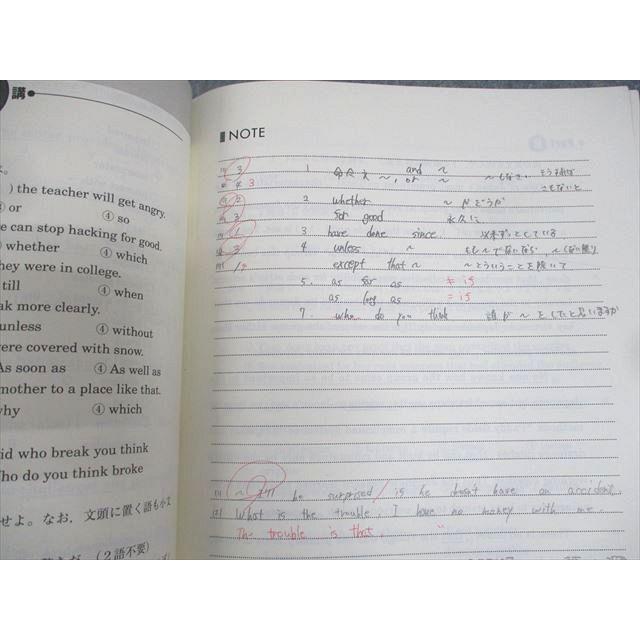 講
) the teacher will get angry.
or ④ so
e can stop hacking for good.
whether ④ which
hey were in college.
till ④ when
ak more clearly.
unless ④ without
were covered with snow.
As soon as ④ As well as
mother to a place like that.
hy ④ which
id who break you think
ho do you think broke
せよ。なお，文頭に置く語も小文
(２語不要)
NOTE
1 命令文 ~, and ~
or ~ ~しなさい そうすれば
さもないと
2 whether ~かどうか
for good 永久に
3 have done since 以来ずっとしている
4 unless ~ もし~でないなら, ~しない限り
except that ~ ~ということを除いて
5. as far as = is
as long as = is
7. who do you think 誰が~をしたと思いますか
he surprised / is he doesn't have an accident.
What is the trouble, I have no money with me.
The trouble is that,